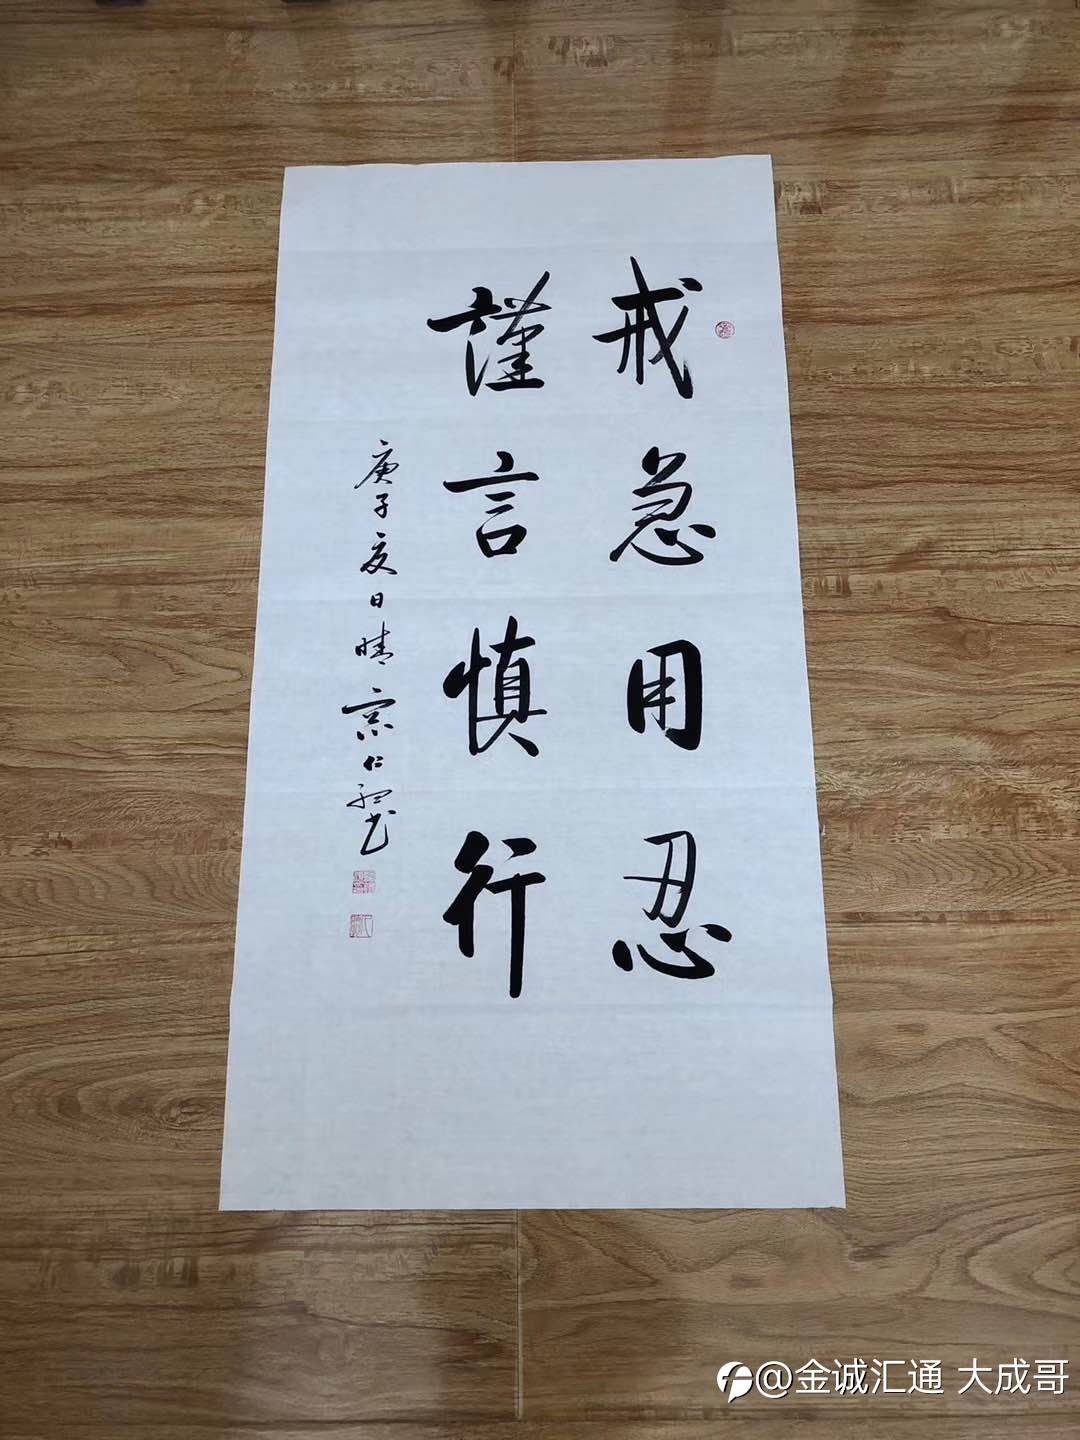 戒急用忍
謹言慎行
庚子夏日晴 宗仁
@金诚汇通 大成哥